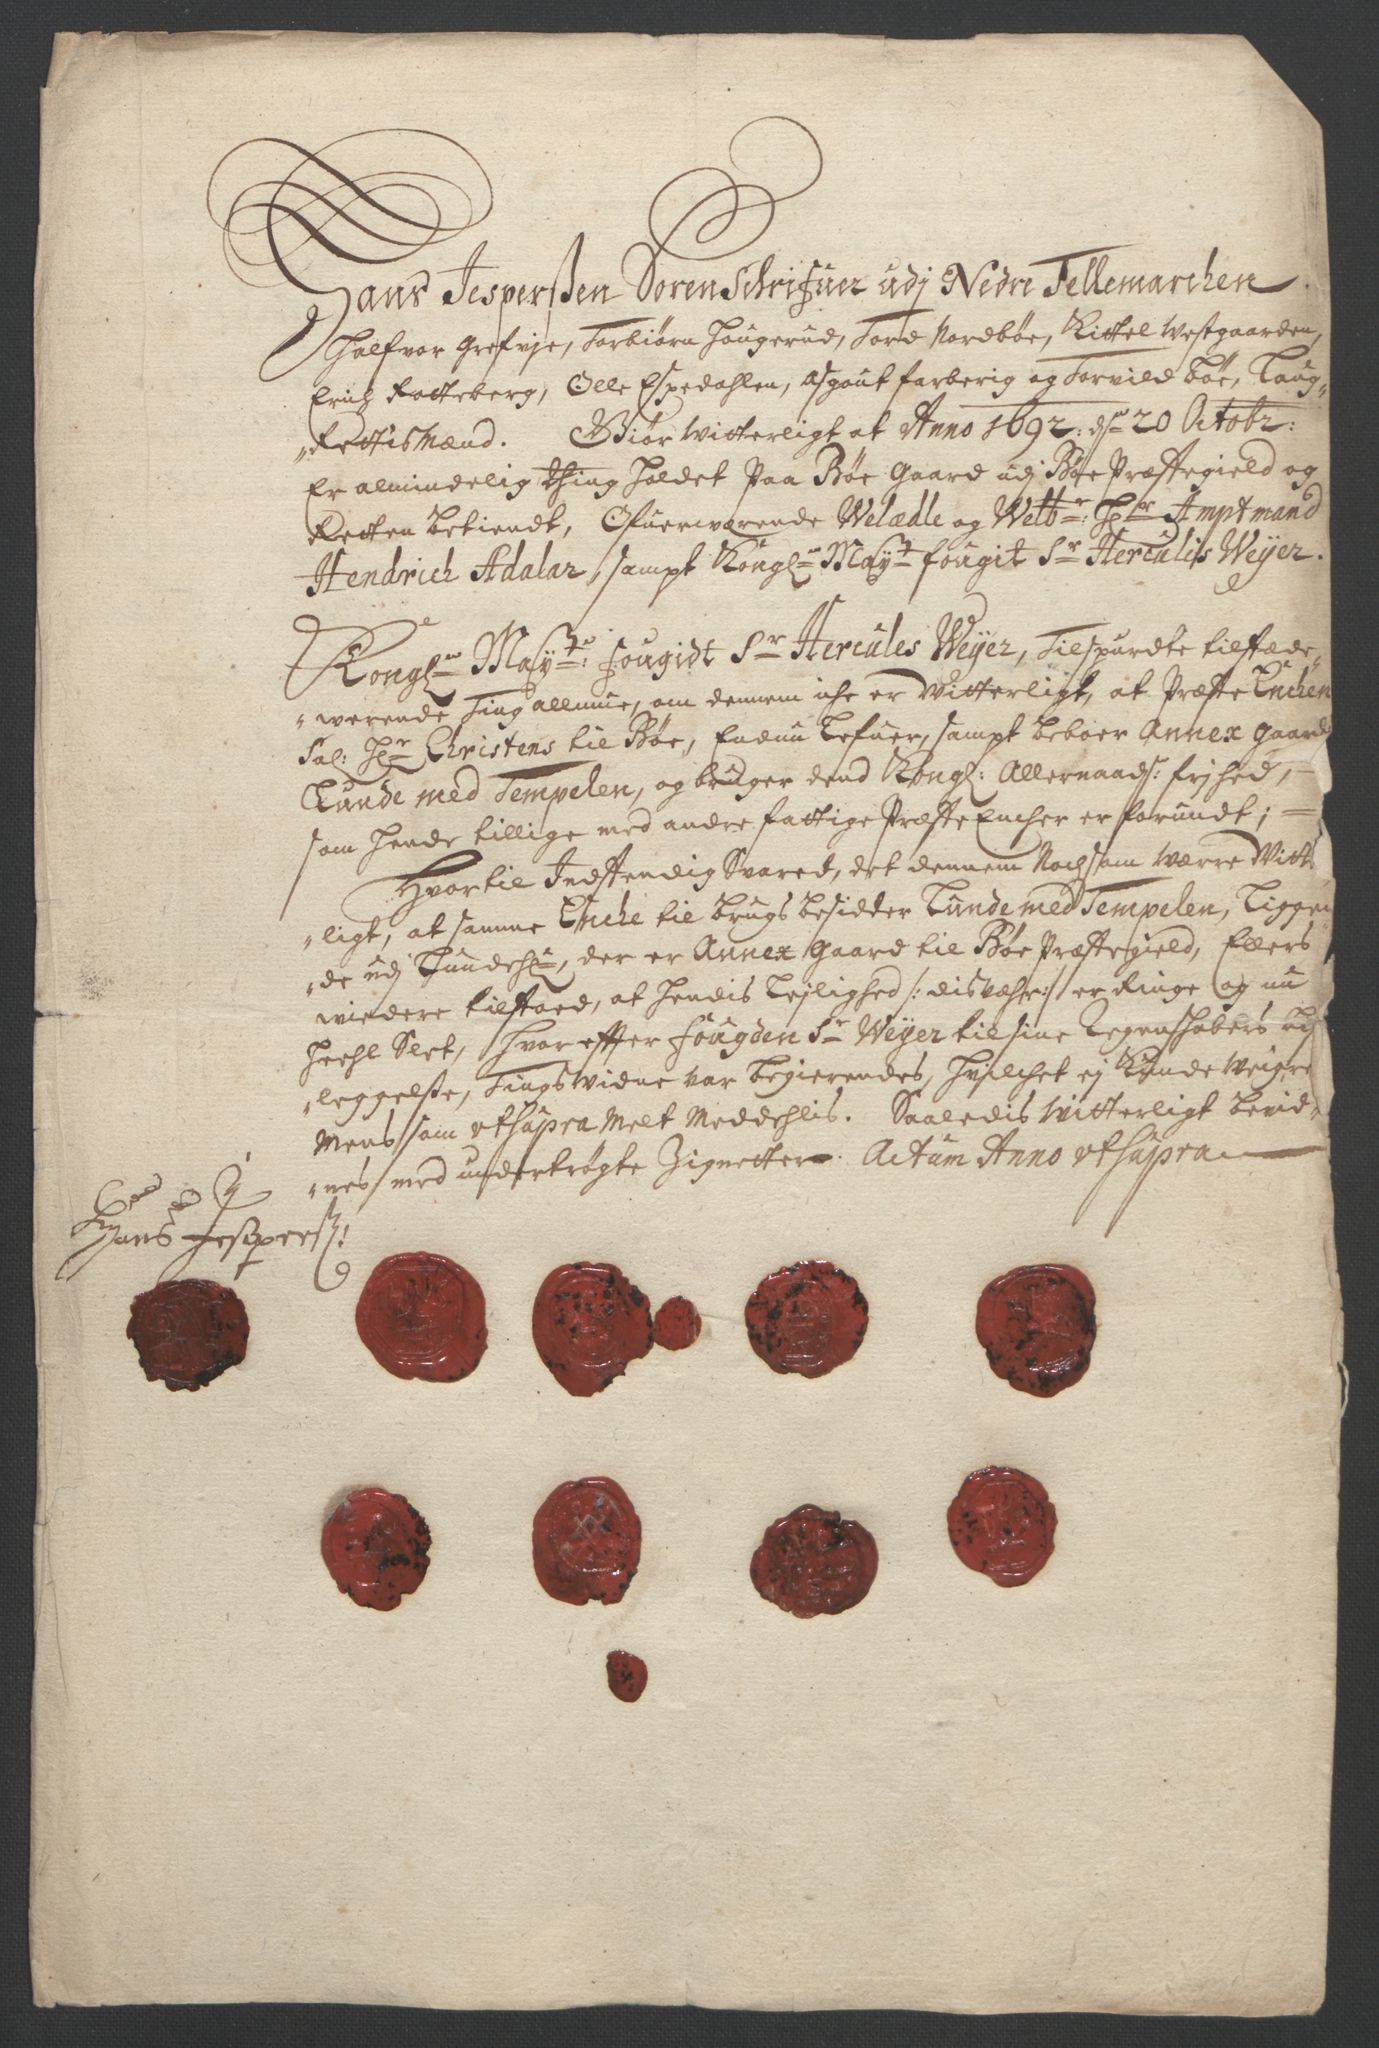 Hans Jesperßen Sorenschrifuer udj Nedre Tellemarchen
Halfvor Grefvje, Torbiørn Hougerud, Tord Nordbøe, Kittel Westgaarden,
Erich Rotteberg, Olle Espedahlen, Asgout farberig og Torvild Bøe, Laug-
„Rettismænd. Giør witterligt at Anno 1692: d: 20 Octobr:
Er almindelig thing holdet paa Bøe Gaard udj Bøe Præstegield og
Retten betiendt, Ofuerwærende Welædle og Welb: Hr Amptmand
Hendrich Adalar, sampt Kongl: May: fougit Sr Hercules Weyer.
Kongl: May: fougidt Sr Hercules Weyer, Tilspurdte tilstæde-
„werende Ting allmue, om dennem iche er Witterligt, at Præste Enchen
Sal: Hr Christens til Bøe, Endnu lefuer, sampt beboer Annex gaarde
Lunde med Tempelen, og bruger dend Kongl: Allernaads: fryhed,
som hende tillige med andre fattige Præste Encher er forundt;
Hvortil Indstendig Svared, det dennem Nochsom værre Witt
„ligt, at samme Enche til brugs besidder Lunde med Tempelen, Liggen
„de udj Lundehl:, der er Annex gaard til Bøe Præstegield, Ellers
widere tilstoed, at hendis Lejlighed /: disvæhr :/ er Ringe og nu
heehl Slet, Hvor effter fougden Sr Weyer til sine Regenschabers by
„leggelße, Tingswidne var begierendes, hvilchet ej Kunde weigre
Mens som vtsupra Melt Meddehlis. Saaledis Witterligt bevid-
„nes med undertrøgte Zignetter. Actum Anno vtsupra
Hans Jeßperß: